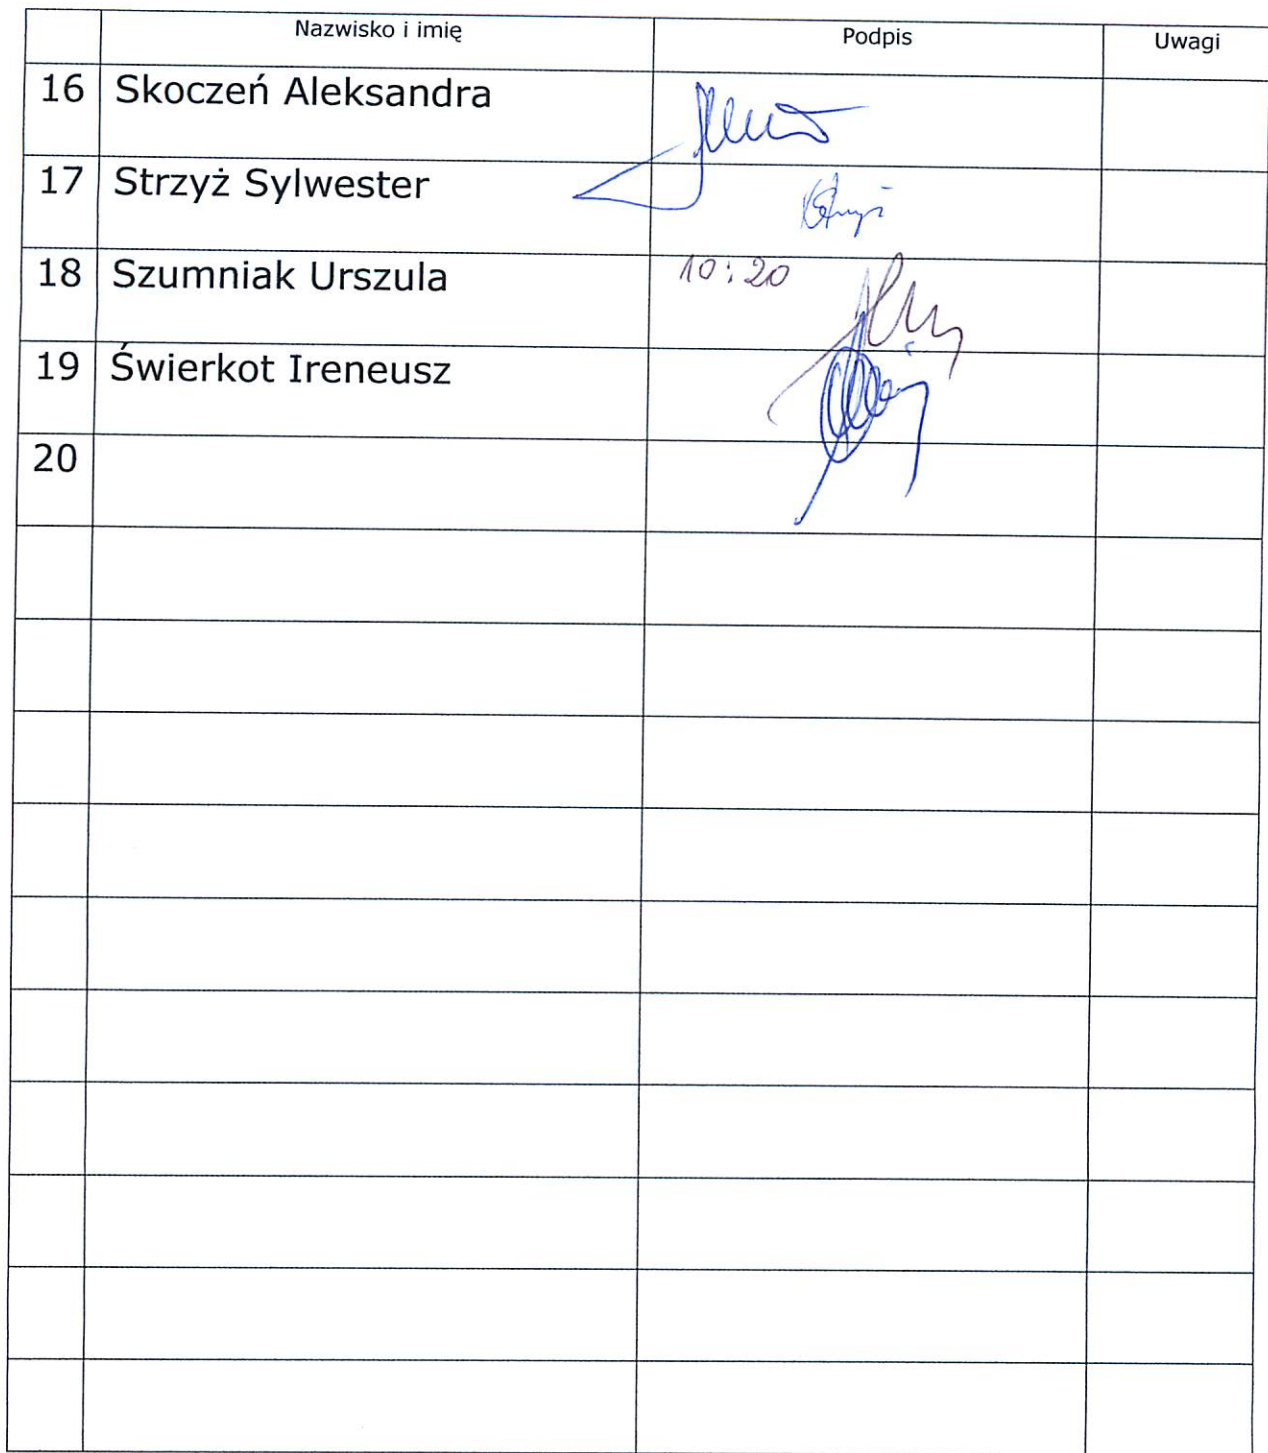 Nazwisko i imię Podpis Uwagi
16 Skoczeń Aleksandra
17 Strzyż Sylwester
18 Szumniak Urszula 10:20
19 Świerkot Ireneusz
20